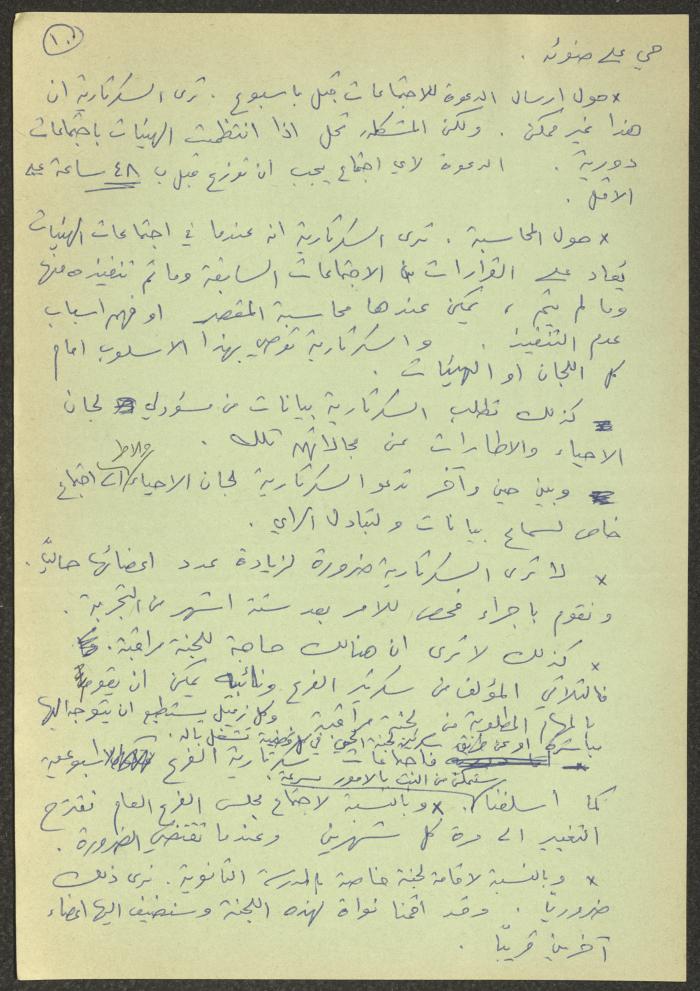 ١٠
حي على ضوئه .
× حول ارسال الدعوة للاجتماعات قبل باسبوع . ترى السكرتارية ان
هذا غير ممكن . ولكن المشكلة تحل اذا انتظمت الهيئات باجتماعات
دورية . الدعوة لاي اجتماع يجب ان توزع قبل ب ٤٨ ساعة على
الاقل .
× حول المحاسبة . ترى السكرتارية انه عندما في اجتماعات الهيئات
يعاد على القرارات من الاجتماعات السابقة وما تم تنفيذه منها
وما لم يتم ، يمكن عندها محاسبة المقصر او فهم اسباب
عدم التنفيذ . والسكرتارية توصي بهذا الاسلوب امام
كل اللجان او الهيئات .
كذلك تطلب السكرتارية بيانات من مسؤولي لجان
الاحياء والاطارات عن مجالاتهم تلك .
وبين حين وآخر تدعو السكرتارية لجان الاحياء اجتماع
خاص لسماع بيانات ولتبادل الراي .
× لا ترى السكرتارية ضرورة لزيادة عدد اعضائها حاليًا .
ونقوم باجراء فحص للامر بعد ستة اشهر من التجربة .
× كذلك لا ترى ان هنالك حاجة للجنة مراقبة .
فالثلاثي المؤلف من سكرتير الفرع ونائبه يمكن ان يقوم
بالمهام المطلوبة من لجنة مراقبة وكل زميل يستطيع ان يتوجه اليها
مباشرة او عن طريق سكرتير لجنة الحي في كل قضية تشغل باله .
فاجتماعات سكرتارية الفرع الاسبوعية
ستمكن من البت بالامور بسرعة
كما اسلفنا . × وبالنسبة لاجتماع مجلس الفرع العام نقترح
التغيير الى مرة كل شهرين وعندما تقتضي الضرورة .
× وبالنسبة لاقامة لجنة خاصة بالمدرسة الثانوية . نرى ذلك
ضروريًا . وقد اقمنا نواة لهذه اللجنة وسنضيف اليها اعضاء
آخرين قريبًا .